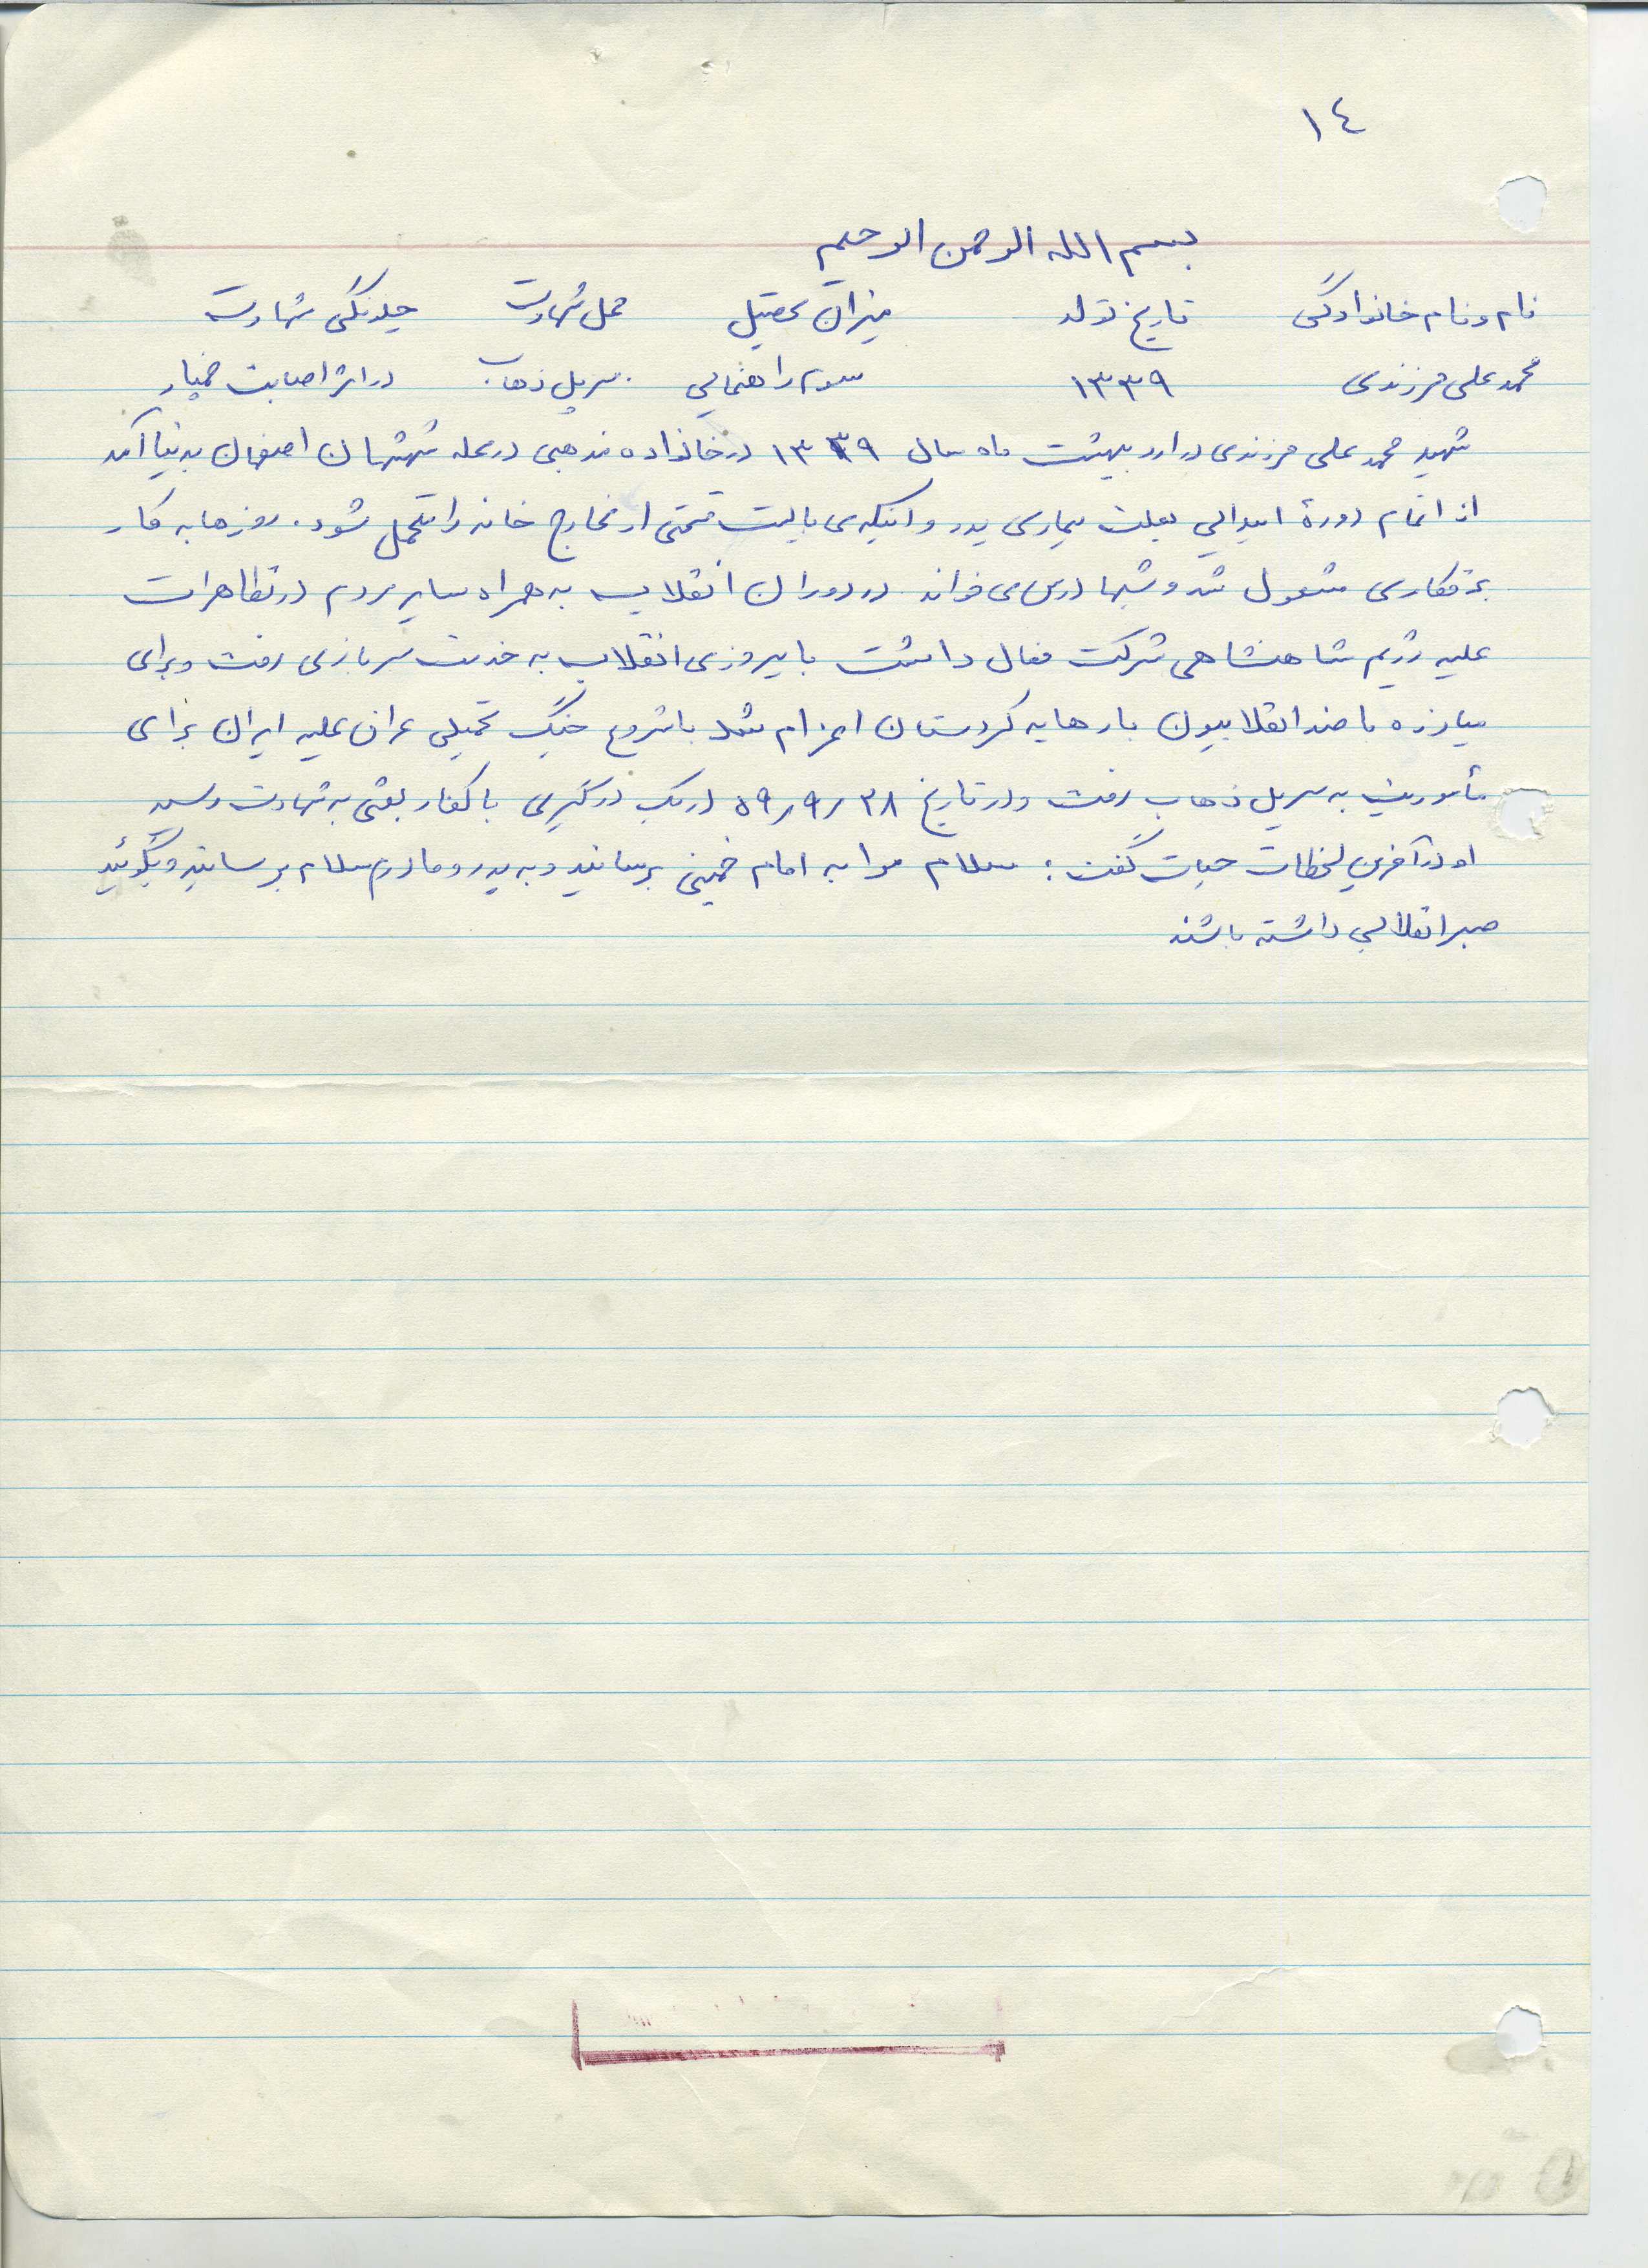 ١٤
بسم الله الرحمن الرحیم
نام و نام خانوادگی تاریخ تولد میزان تحصیل محل شهادت چگونگی شهادت
محمد علی فرزندی ۱۳۳۹ سوم راهنمایی سرپل ذهاب در اثر اصابت خمپاره
شهید محمد علی فرزندی در اردیبهشت ماه سال ۱۳۳۹ در خانواده مذهبی در محله شهشهان اصفهان بدنیا آمد
از اتمام دورهٔ ابتدایی بعلت بیماری پدر و اینکه می بایست قسمتی از مخارج خانه را متحمل شود. روزها به کار
برقکاری مشغول شد و شبها درس می خواند در دوران انقلاب به همراه سایر مردم در تظاهرات
علیه رژیم شاهنشاهی شرکت فعال داشت با پیروزی انقلاب به خدمت سربازی رفت و برای
مبارزه با ضد انقلابیون بارها به کردستان اعزام شد با شروع جنگ تحمیلی عراق علیه ایران برای
مأموریت به سرپل ذهاب رفت و در تاریخ ۵۹/۹/۲۸ در یک درگیری با کفار بعثی به شهادت رسید
او در آخرین لحظات حیات گفت : سلام مرا به امام خمینی برسانید و به پدر و مادرم سلام برسانید و بگوئید
صبر انقلابی داشته باشند